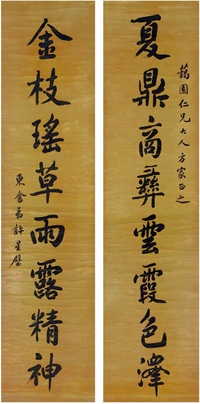 藹園仁兄大人方家正之
夏鼎商彝雲霞色澤
金枝瑤草雨露精神
東畬弟許星璧